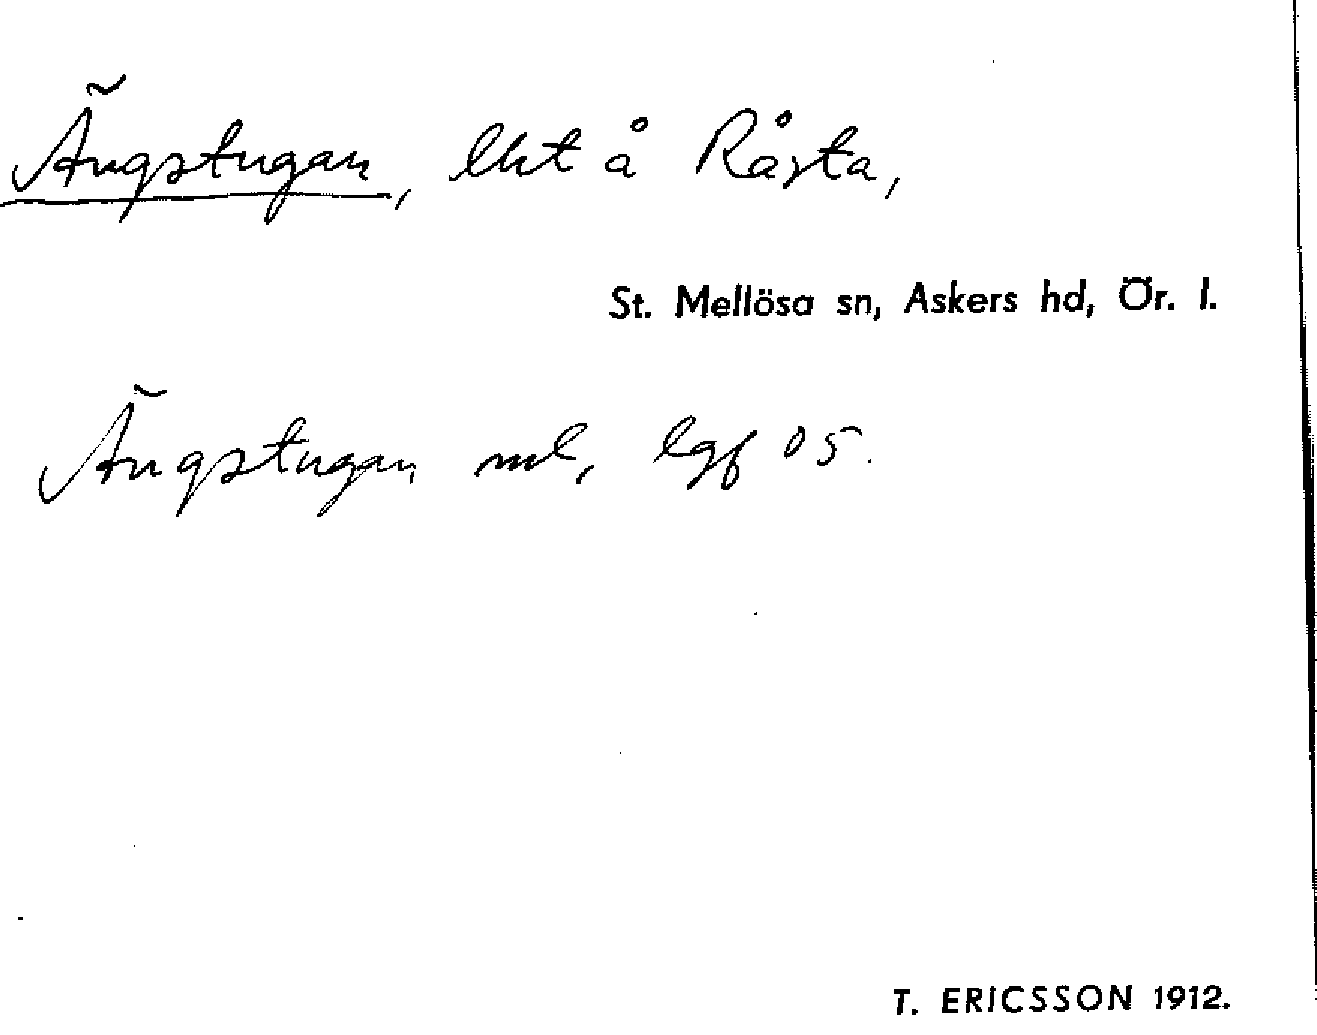 Ängstugan, lht å Råsta,
St. Mellösa sn, Askers hd, Ör. l.
Ängstugan ml, lgf 05.
T. ERICSSON 1912.